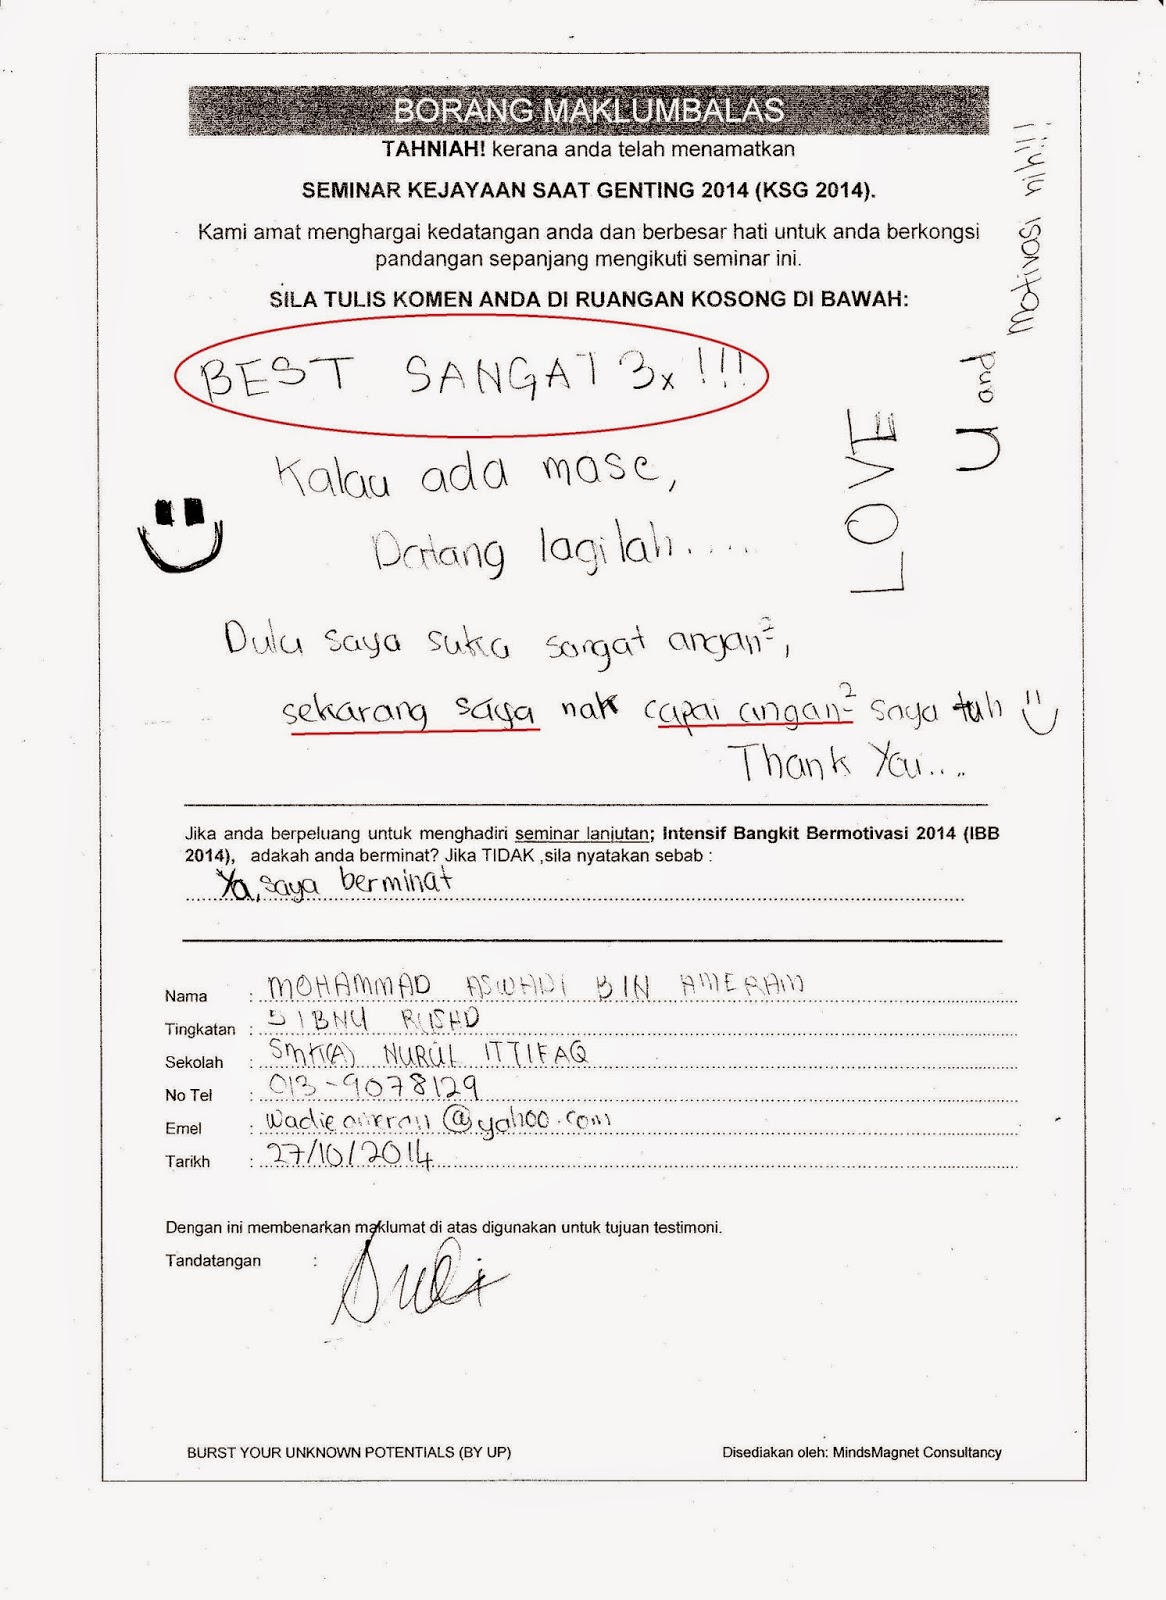 BORANG MAKLUMBALAS
TAHNIAH! kerana anda telah menamatkan
SEMINAR KEJAYAAN SAAT GENTING 2014 (KSG 2014).
Kami amat menghargai kedatangan anda dan berbesar hati untuk anda berkongsi
pandangan sepanjang mengikuti seminar ini.
SILA TULIS KOMEN ANDA DI RUANGAN KOSONG DI BAWAH:
BEST SANGAT 3x !!!
Kalau ada mase,
Datang lagilah.....
LOVE
U and
motivasi nih!!!
Dulu saya suka sangat angan²,
sekarang saya nak capai angan² saya tuh
Thank You....
Jika anda berpeluang untuk menghadiri seminar lanjutan; Intensif Bangkit Bermotivasi 2014 (IBB
2014), adakah anda berminat? Jika TIDAK ,sila nyatakan sebab :
Ya, saya berminat
Nama : MOHAMMAD ASWADI BIN AMERAM
Tingkatan : 5 IBNU RUSHD
Sekolah : SMK(A) NURUL ITTIFAQ
No Tel : 013-9078129
Emel : @yahoo.com
Tarikh : 27/10/2014
Dengan ini membenarkan maklumat di atas digunakan untuk tujuan testimoni.
Tandatangan :
BURST YOUR UNKNOWN POTENTIALS (BY UP) Disediakan oleh: MindsMagnet Consultancy